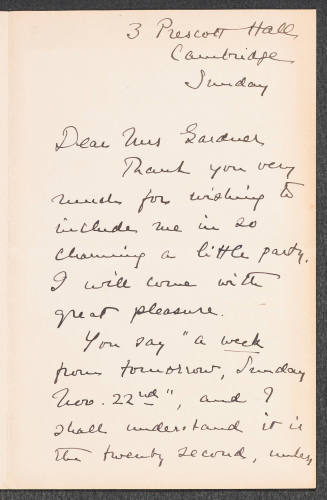 3 Prescott Hall
Cambridge
Sunday
Dear Mrs Gardner
Thank you very
much for wishing to
include me in so
charming a little party.
I will come with
great pleasure.
You say "a week
from tomorrow, Sunday
Nov. 22nd", and I
shall understand it is
the twenty second, unless